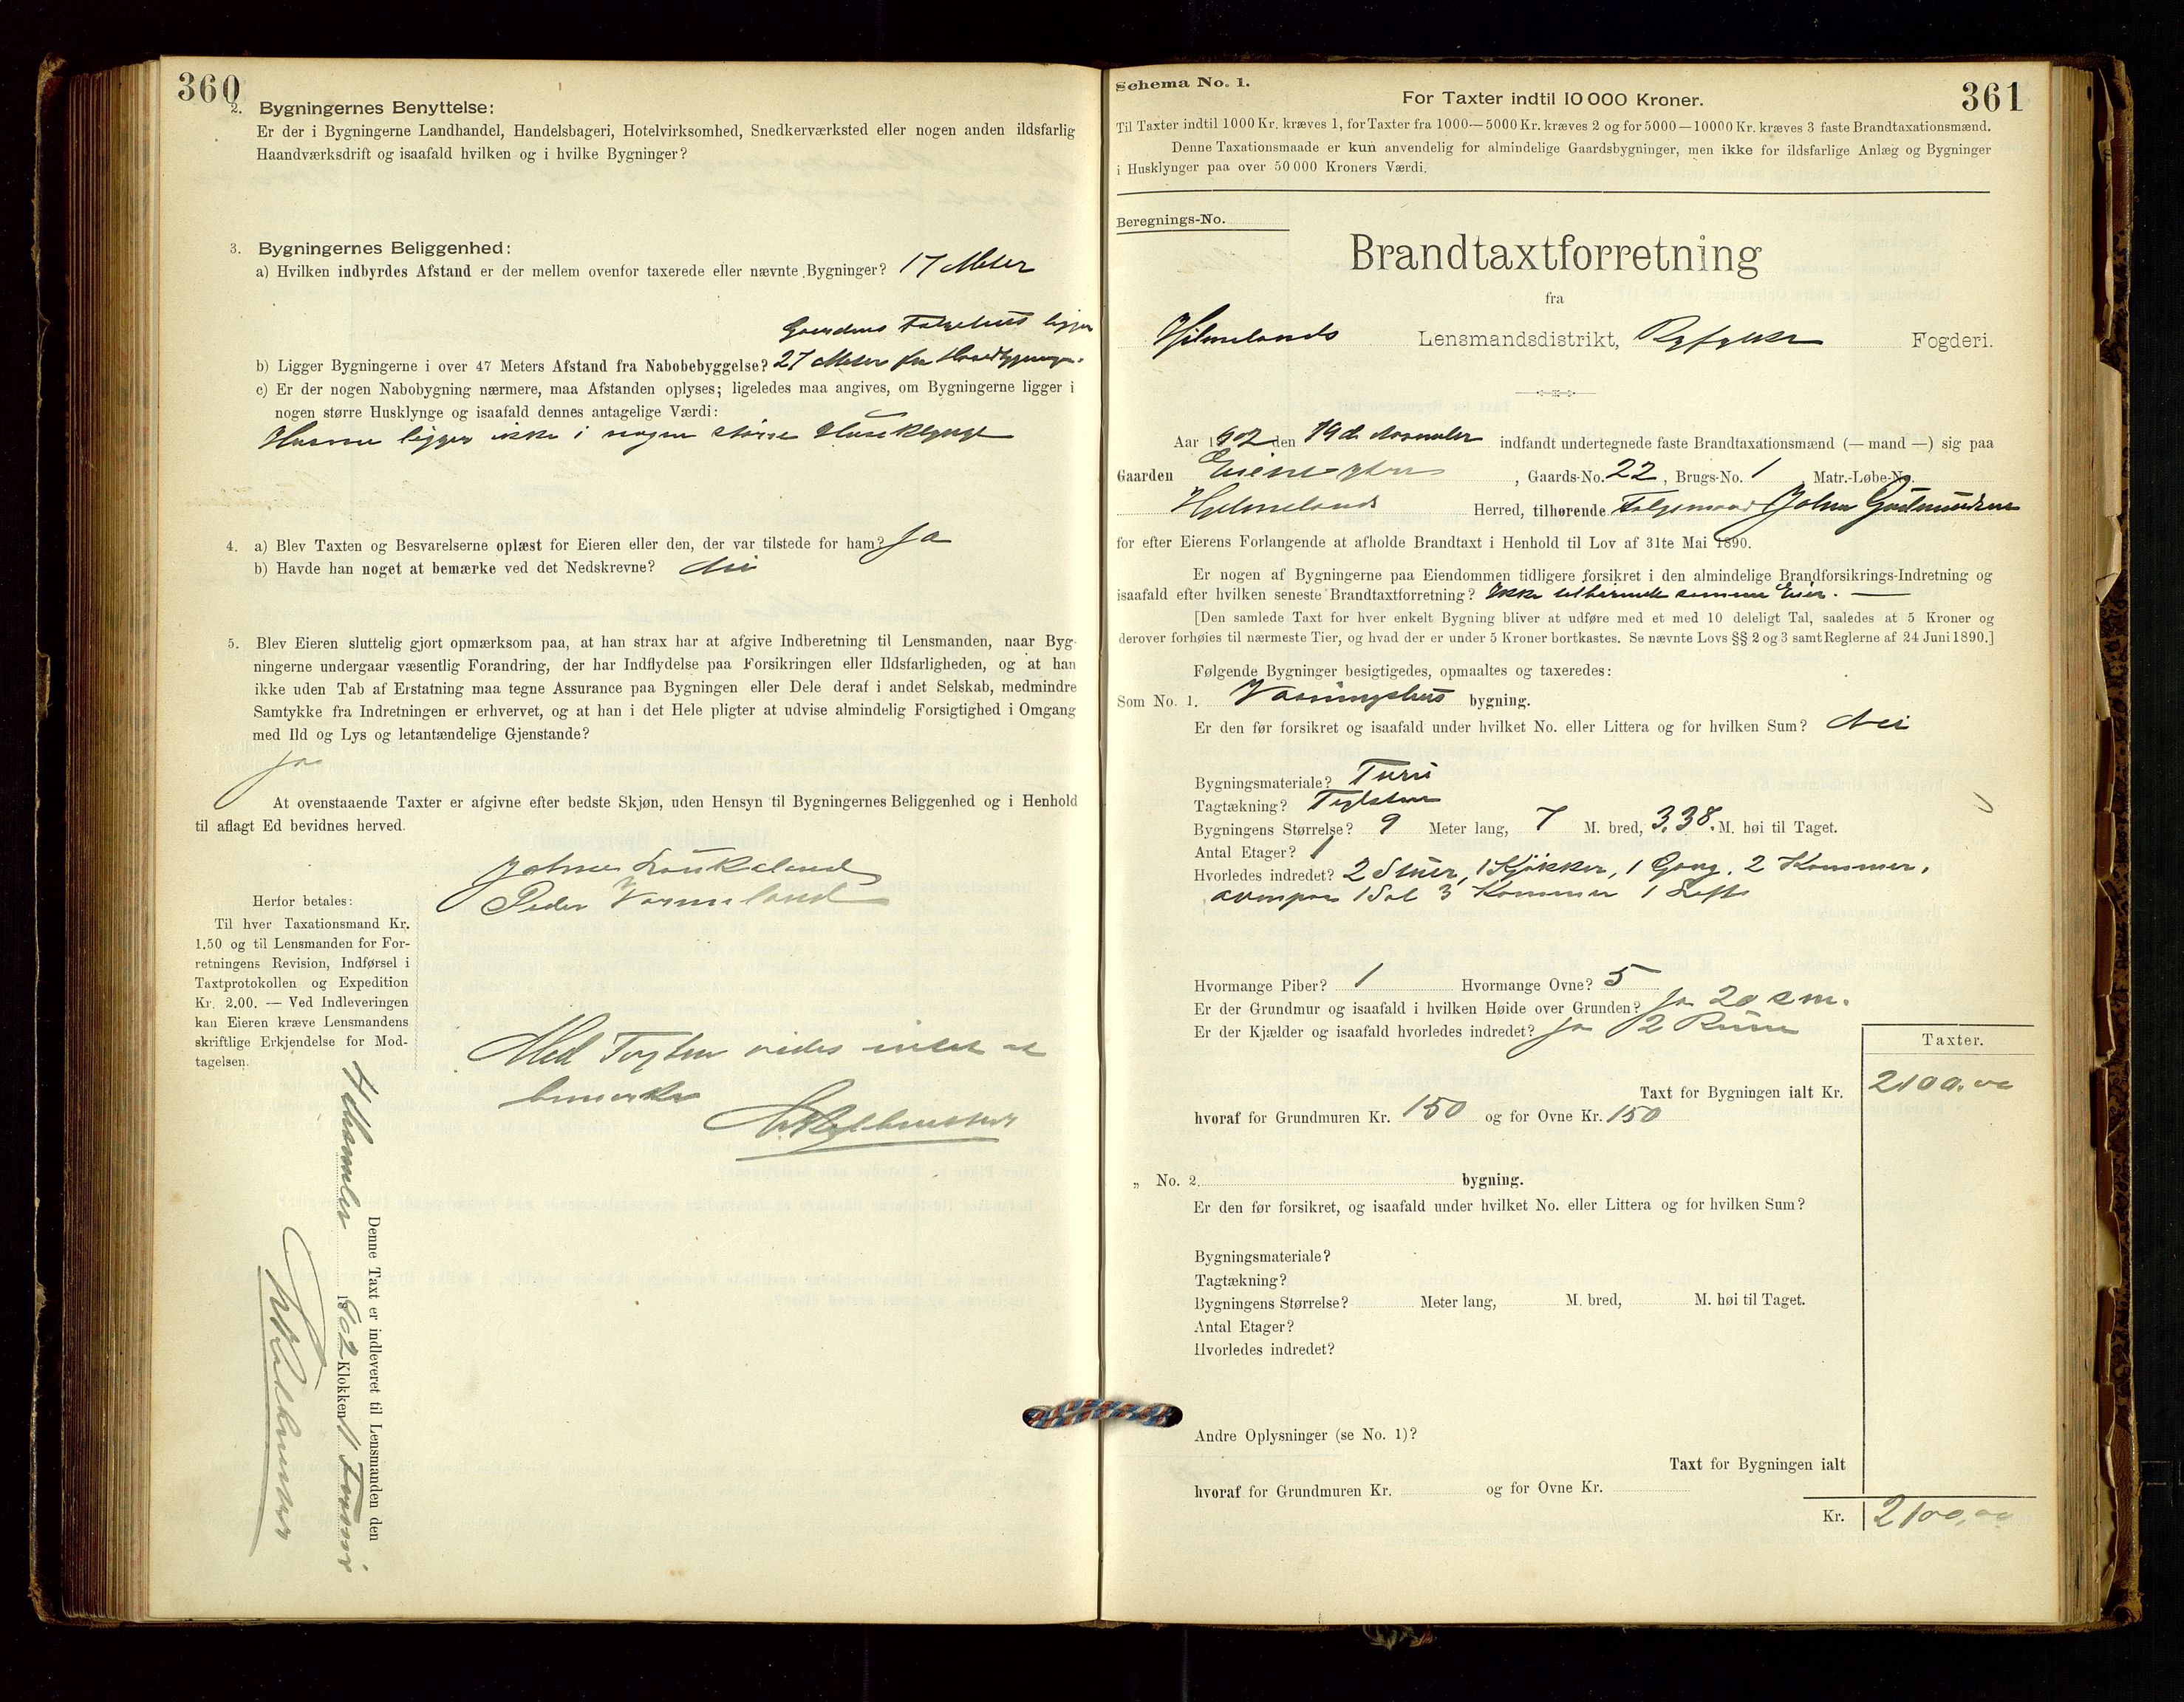 360
2. Bygningernes Benyttelse:
Er der i Bygningerne Landhandel, Handelsbageri, Hotelvirksomhed, Snedkerværksted eller nogen anden ildsfarlig
Haandværksdrift og isaafald hvilken og i hvilke Bygninger?
3. Bygningernes Beliggenhed:
a) Hvilken indbyrdes Afstand er der mellem ovenfor taxerede eller nævnte Bygninger? 17 Meter
Gaardens ligger
b) Ligger Bygningerne i over 47 Meters Afstand fra Nabobebyggelse? 27 Meter fra
c) Er der nogen Nabobygning nærmere, maa Afstanden oplyses; ligeledes maa angives, om Bygningerne ligger i
nogen større Husklynge og isaafald dennes antagelige Værdi:
Husene ligger ikke i nogen større Huseklynge
4. a) Blev Taxten og Besvarelserne oplæst for Eieren eller den, der var tilstede for ham? Ja
b) Havde han noget at bemærke ved det Nedskrevne? Nei
5. Blev Eieren sluttelig gjort opmærksom paa, at han strax har at afgive Indberetning til Lensmanden, naar Byg-
ningerne undergaar væsentlig Forandring, der har Indflydelse paa Forsikringen eller Ildsfarligheden, og at han
ikke uden Tab af Erstatning maa tegne Assurance paa Bygningen eller Dele deraf i andet Selskab, medmindre
Samtykke fra Indretningen er erhvervet, og at han i det Hele pligter at udvise almindelig Forsigtighed i Omgang
med Ild og Lys og letantændelige Gjenstande?
Ja
At ovenstaaende Taxter er afgivne efter bedste Skjøn, uden Hensyn til Bygningernes Beliggenhed og i Henhold
til aflagt Ed bevidnes herved.
Peder
Herfor betales:
Til hver Taxationsmand Kr.
1.50 og til Lensmanden for For-
retningens Revision, Indførsel i
Taxtprotokollen og Expedition
Kr. 2.00. — Ved Indleveringen
kan Eieren kræve Lensmandens
skriftlige Erkjendelse for Mod-
tagelsen.
Med Taxten vides intet at
bemærke
Denne Taxt er indleveret til Lensmanden den
18902 Klokken 11
361
Schema No. 1.
For Taxter indtil 10 000 Kroner.
Til Taxter indtil 1000 Kr. kræves 1, for Taxter fra 1000—5000 Kr. kræves 2 og for 5000—10000 Kr. kræves 3 faste Brandtaxationsmænd.
Denne Taxationsmaade er kun anvendelig for almindelige Gaardsbygninger, men ikke for ildsfarlige Anlæg og Bygninger
i Husklynger paa over 50 000 Kroners Værdi.
Beregnings-No.
Brandtaxtforretning
fra
Hjelmelands Lensmandsdistrikt, Ryfylke Fogderi.
Aar 1902 den 19de November indfandt undertegnede faste Brandtaxationsmænd (— mand —) sig paa
Gaarden , Gaards-No. 22, Brugs-No. 1 Matr.-Løbe-No.
Hjelmelands Herred, tilhørende John Gudmundsen
for efter Eierens Forlangende at afholde Brandtaxt i Henhold til Lov af 31te Mai 1890.
Er nogen af Bygningerne paa Eiendommen tidligere forsikret i den almindelige Brandforsikrings-Indretning og
isaafald efter hvilken seneste Brandtaxtforretning? Ikke tilhørende samme Eier. —
[Den samlede Taxt for hver enkelt Bygning bliver at udføre med et med 10 deleligt Tal, saaledes at 5 Kroner og
derover forhøies til nærmeste Tier, og hvad der er under 5 Kroner bortkastes. Se nævnte Lovs §§ 2 og 3 samt Reglerne af 24 Juni 1890.]
Følgende Bygninger besigtigedes, opmaaltes og taxeredes:
Som No. 1. Vaaningshus bygning.
Er den før forsikret og isaafald under hvilket No. eller Littera og for hvilken Sum? Nei
Bygningsmateriale?
Tagtækning? Teglsten
Bygningens Størrelse? 9 Meter lang, 7 M. bred, 3.38. M. høi til Taget.
Antal Etager? 1
Hvorledes indredet? 2 Stuer, 1 Kjøkken, 1 Gang, 2 Kammer,
ovenpaa 1 Sal 3 Kammer 1 Loft
Hvormange Piber? 1 Hvormange Ovne? 5
Er der Grundmur og isaafald i hvilken Høide over Grunden? Ja 20 cm.
Er der Kjælder og isaafald hvorledes indredet? Ja 2 Rum
Taxter.
Taxt for Bygningen ialt Kr. 2100.00
hvoraf for Grundmuren Kr. 150 og for Ovne Kr. 150
„ No. 2 bygning.
Er den før forsikret, og isaafald under hvilket No. eller Littera og for hvilken Sum?
Bygningsmateriale?
Tagtækning?
Bygningens Størrelse? Meter lang, M. bred, M. høi til Taget.
Antal Etager?
Hvorledes indredet?
Andre Oplysninger (se No. 1)?
Taxt for Bygningen ialt
hvoraf for Grundmuren Kr. og for Ovne Kr.
Kr. 2100,00